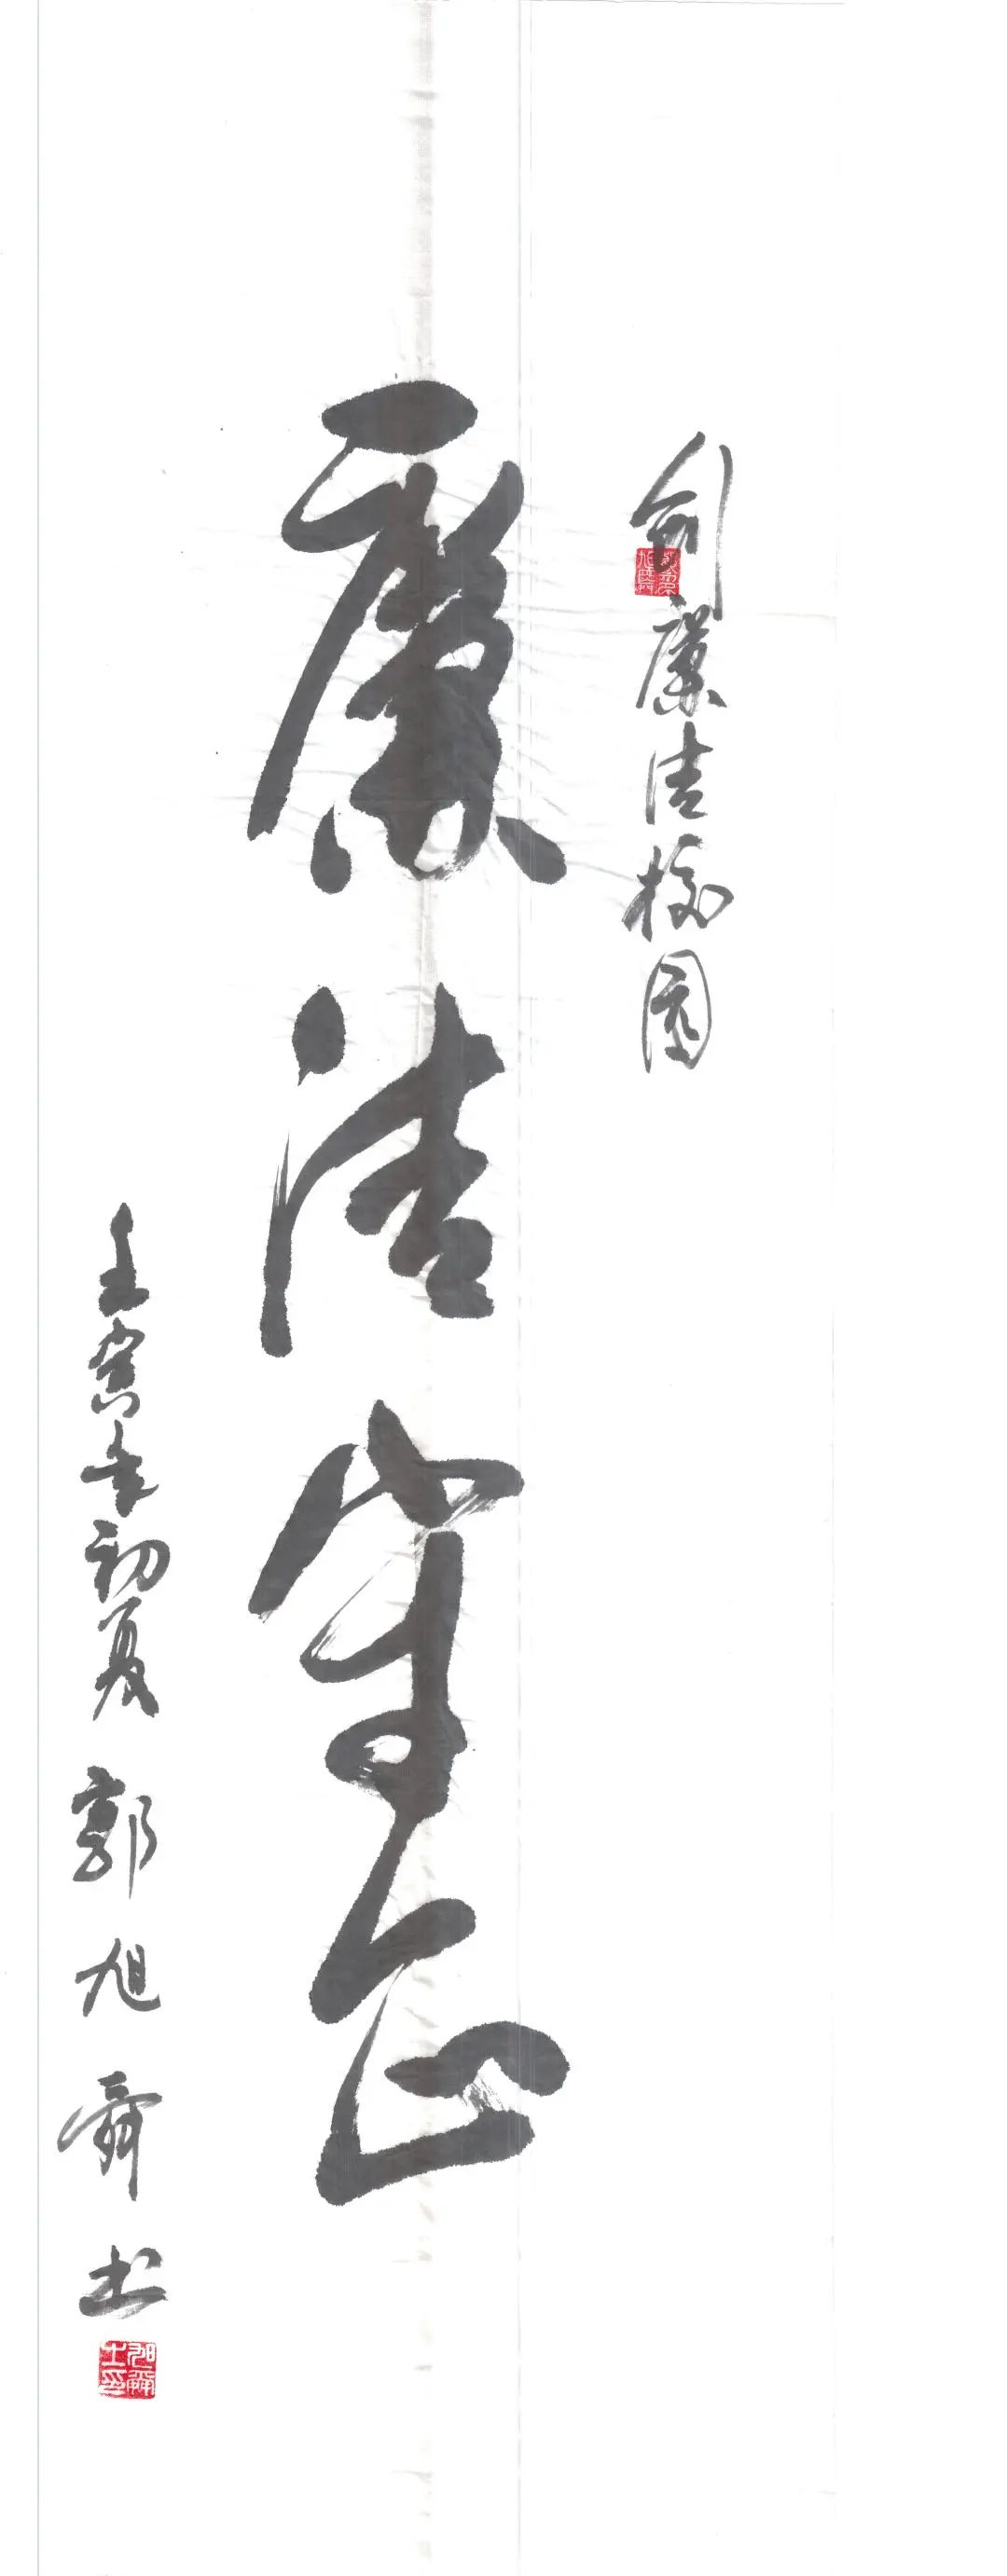 创廉洁校园
廉洁守正
壬寅年初夏 郭旭舜书